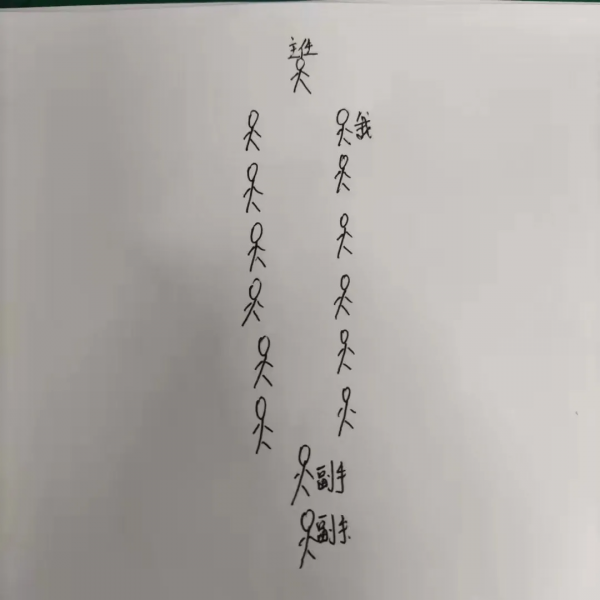 主任
我
副手
副手